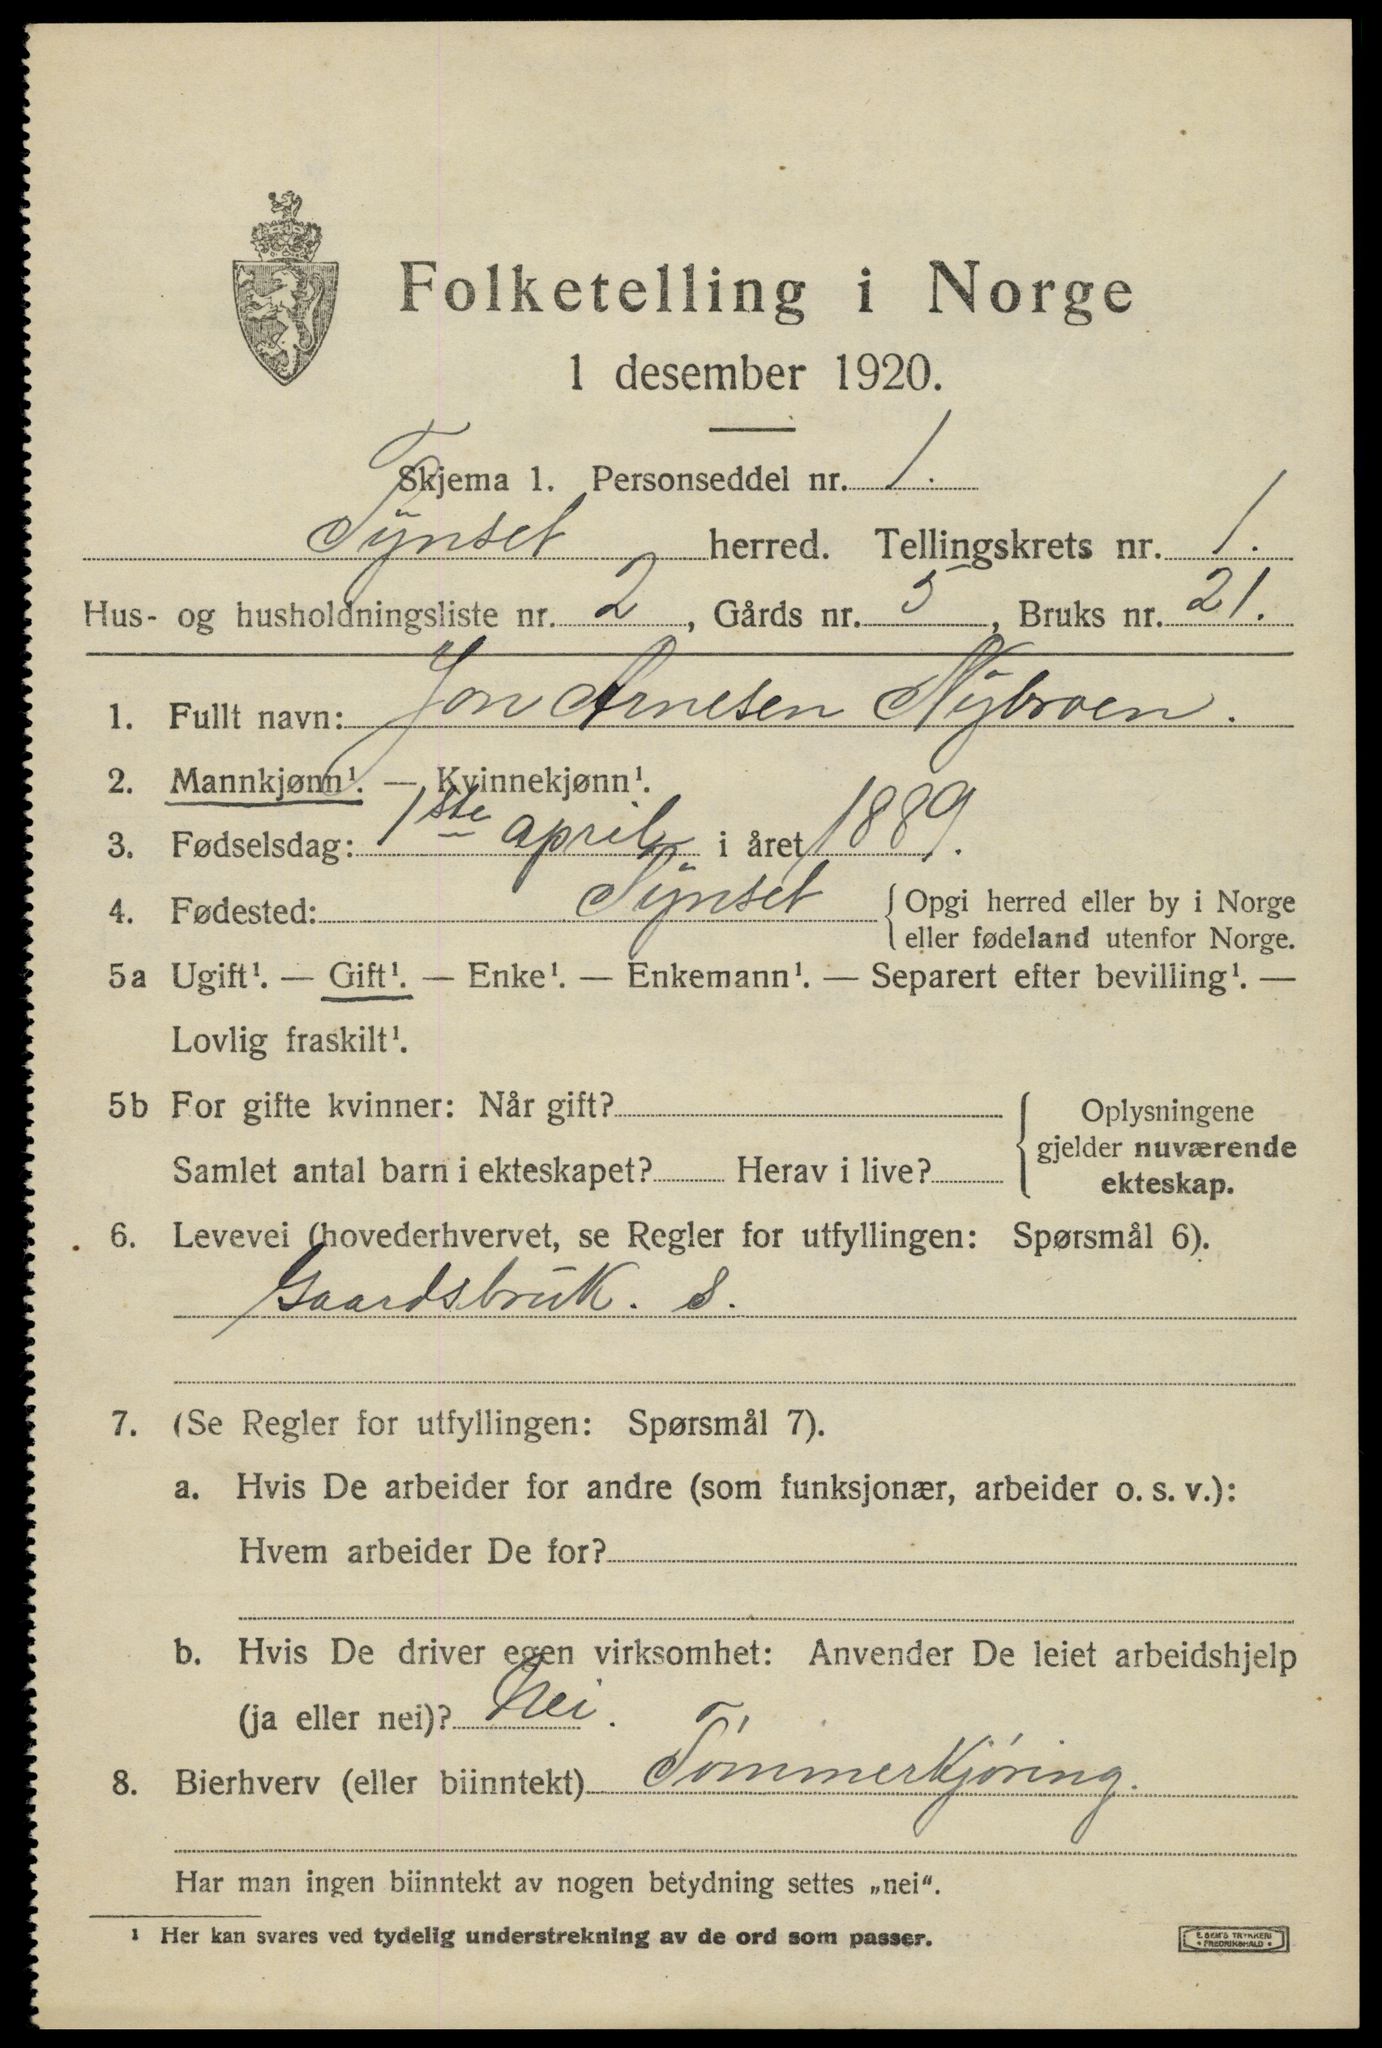 Folketelling i Norge
1 desember 1920.
Skjema 1. Personseddel nr. 1.
Tynset herred. Tellingskrets nr. 1.
Hus- og husholdningsliste nr. 2, Gårds nr. 5, Bruks nr. 21.
1. Fullt navn: Jon Arnesen Nÿbroen.
2. Mannkjønn¹. — Kvinnekjønn¹.
3. Fødselsdag: 1ste april i året 1889.
4. Fødested: Tÿnset { Opgi herred eller by i Norge
eller fødeland utenfor Norge.
5a Ugift¹. — Gift¹. — Enke¹. — Enkemann¹. — Separert efter bevilling¹. —
Lovlig fraskilt¹.
5b For gifte kvinner: Når gift? { Oplysningene
gjelder nuværende
Samlet antal barn i ekteskapet? Herav i live? ekteskap.
6. Levevei (hovederhvervet, se Regler for utfyllingen: Spørsmål 6).
Gaardsbruk. S.
7. (Se Regler for utfyllingen: Spørsmål 7).
a. Hvis De arbeider for andre (som funksjonær, arbeider o. s. v.):
Hvem arbeider De for?
b. Hvis De driver egen virksomhet: Anvender De leiet arbeidshjelp
(ja eller nei)? Nei.
8. Bierhverv (eller biinntekt) Tómmerkjóring.
Har man ingen biinntekt av nogen betydning settes „nei“.
¹ Her kan svares ved tydelig understrekning av de ord som passer.
E. SEM'S TRYKKERI
• FREDRIKSHALD •